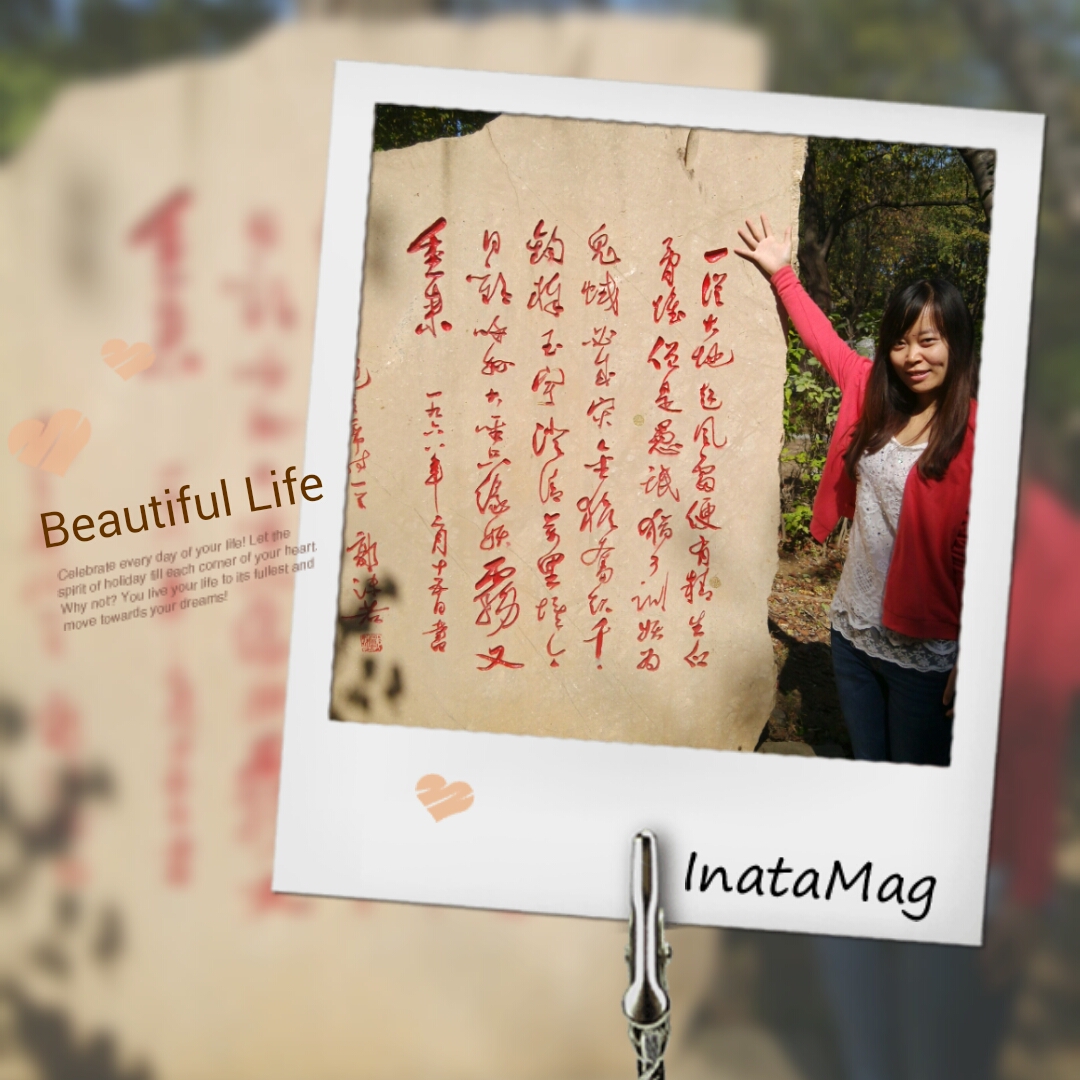 一從大地起風雷便有精生白
骨堆僧是愚氓猶可訓妖為
鬼蜮必成灾金猴奮起千
鈞棒玉宇澄清萬里埃今
日歡呼孙大聖只緣妖霧又
重來
一九六八年月十五日書
郭沫若
Beautiful Life
Celebrate every day of your life! Let the
spirit of holiday fill each corner of your heart.
Why not? You live your life to its fullest and
move towards your dreams!
InataMag